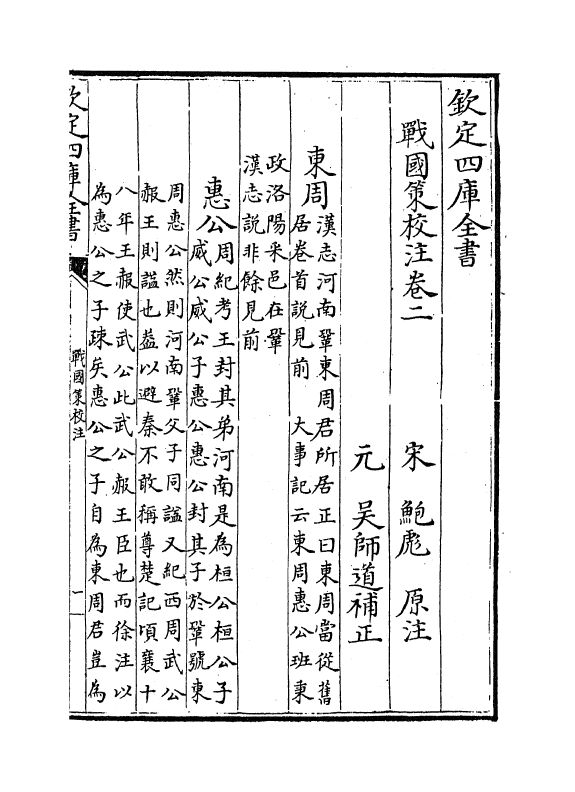 欽定四庫全書
戰國策校注卷二
宋 鮑彪 原注
元 吳師道補正
東周漢志河南鞏東周君所居正曰東周當從舊
居卷首說見前 大事記云東周惠公班秉
政洛陽采邑在鞏
漢志說非餘見前
惠公周紀考王封其弟河南是為桓公桓公子
威公威公子惠公惠公封其子於鞏號東
周惠公然則河南鞏父子同諡又紀西周武公
赧王則諡也葢以避秦不敢稱尊楚記頃襄十
八年王赧使武公此武公赧王臣也而徐注以
為惠公之子疎矣惠公之子自為東周君豈為
欽定四庫全書
戰國策校注
一